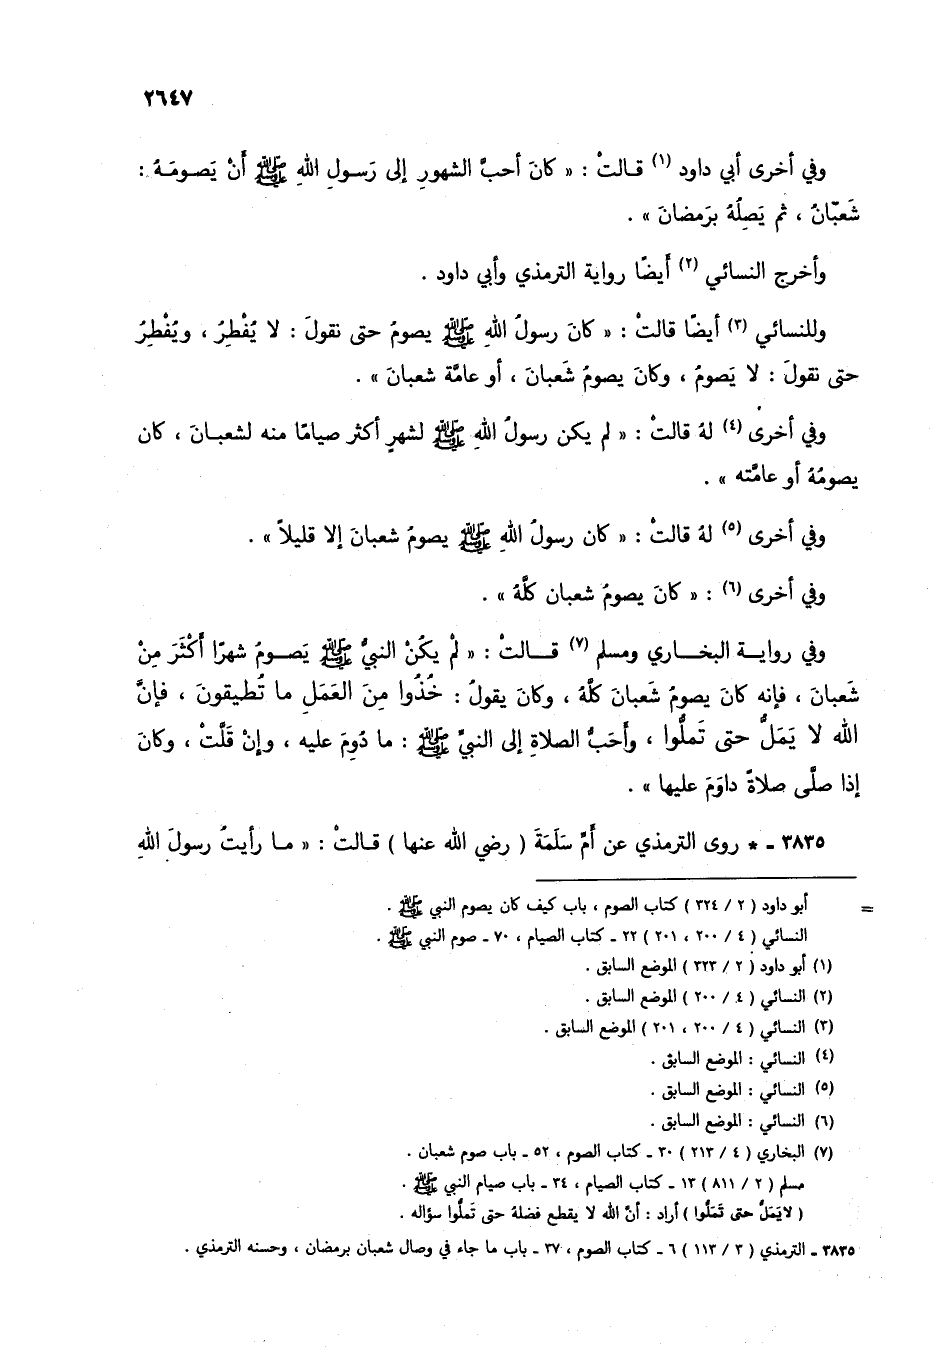 ٢٦٤٧
وفي أخرى أبي داود (١) قالتْ : « كانَ أحبَّ الشهورِ إلى رَسولِ اللهِ ﷺ أَنْ يَصومَهُ :
شَعبّانُ ، ثم يَصِلُهُ برَمضانَ » .
وأخرج النسائي (٢) أَيضًا رواية الترمذي وأبي داود .
وللنسائي (٣) أيضًا قالتْ : « كانَ رسولُ اللهِ ﷺ يصومُ حتى نقولَ : لا يُفْطِرُ ، ويُفْطِرُ
حتى نقولَ : لا يَصومُ ، وكانَ يصومُ شَعبانَ ، أو عامَّة شعبانَ » .
وفي أخرى (٤) لهُ قالتْ : « لم يكن رسولُ اللهِ ﷺ لشهرٍ أكثر صيامًا منه لشعبانَ ، كان
يصومُهُ أو عامَّته » .
وفي أخرى (٥) لهُ قالتْ : « كان رسولُ اللهِ ﷺ يصومُ شعبانَ إلا قليلاً » .
وفي أخرى (٦) : « كانَ يصومُ شعبان كلَّهُ » .
وفي رواية البخاري ومسلم (٧) قالتْ : « لمْ يكُنْ النبيُّ ﷺ يَصومُ شهرًا أَكْثَرَ مِنْ
شَعبانَ ، فإنه كانَ يصومُ شَعبانَ كلَّهُ ، وكانَ يقولُ : خُذُوا مِنَ العَمَلِ ما تُطيقونَ ، فإنَّ
الله لا يَمَلُّ حتى تَملُّوا ، وأَحَبُّ الصلاةِ إلى النبيِّ ﷺ : ما دُومَ عليه ، وإنْ قَلَّتْ ، وكانَ
إذا صلَّى صلاةً داوَمَ عليها » .
٣٨٣٥ - * روى الترمذي عن أمِّ سَلَمَةَ ( رضي الله عنها ) قالتْ : « ما رأيتُ رسولَ اللهِ
= أبو داود ( ٢ / ٣٢٤ ) كتاب الصوم ، باب كيف كان يصوم النبي ﷺ .
النسائي ( ٤ / ٢٠٠ ، ٢٠١ ) ٢٢ - كتاب الصيام ، ٧٠ - صوم النبي ﷺ .
(١) أبو داود ( ٢ / ٣٢٣ ) الموضع السابق .
(٢) النسائي ( ٤ / ٢٠٠ ) الموضع السابق .
(٣) النسائي ( ٤ / ٢٠٠ ، ٢٠١ ) الموضع السابق .
(٤) النسائي : الموضع السابق .
(٥) النسائي : الموضع السابق .
(٦) النسائي : الموضع السابق .
(٧) البخاري ( ٤ / ٢١٣ ) ٣٠ - كتاب الصوم ، ٥٢ - باب صوم شعبان .
مسلم ( ٢ / ٨١١ ) ١٣ - كتاب الصيام ، ٣٤ - باب صيام النبي ﷺ .
( لا يَمَلُّ حتى تَمَلُّوا ) أراد : أنَّ الله لا يقطع فضلهُ حتى تَملُّوا سؤاله .
٣٨٣٥ - الترمذي ( ٣ / ١١٣ ) ٦ - كتاب الصوم ، ٣٧ - باب ما جاء في وصال شعبان برمضان ، وحسنه الترمذي .